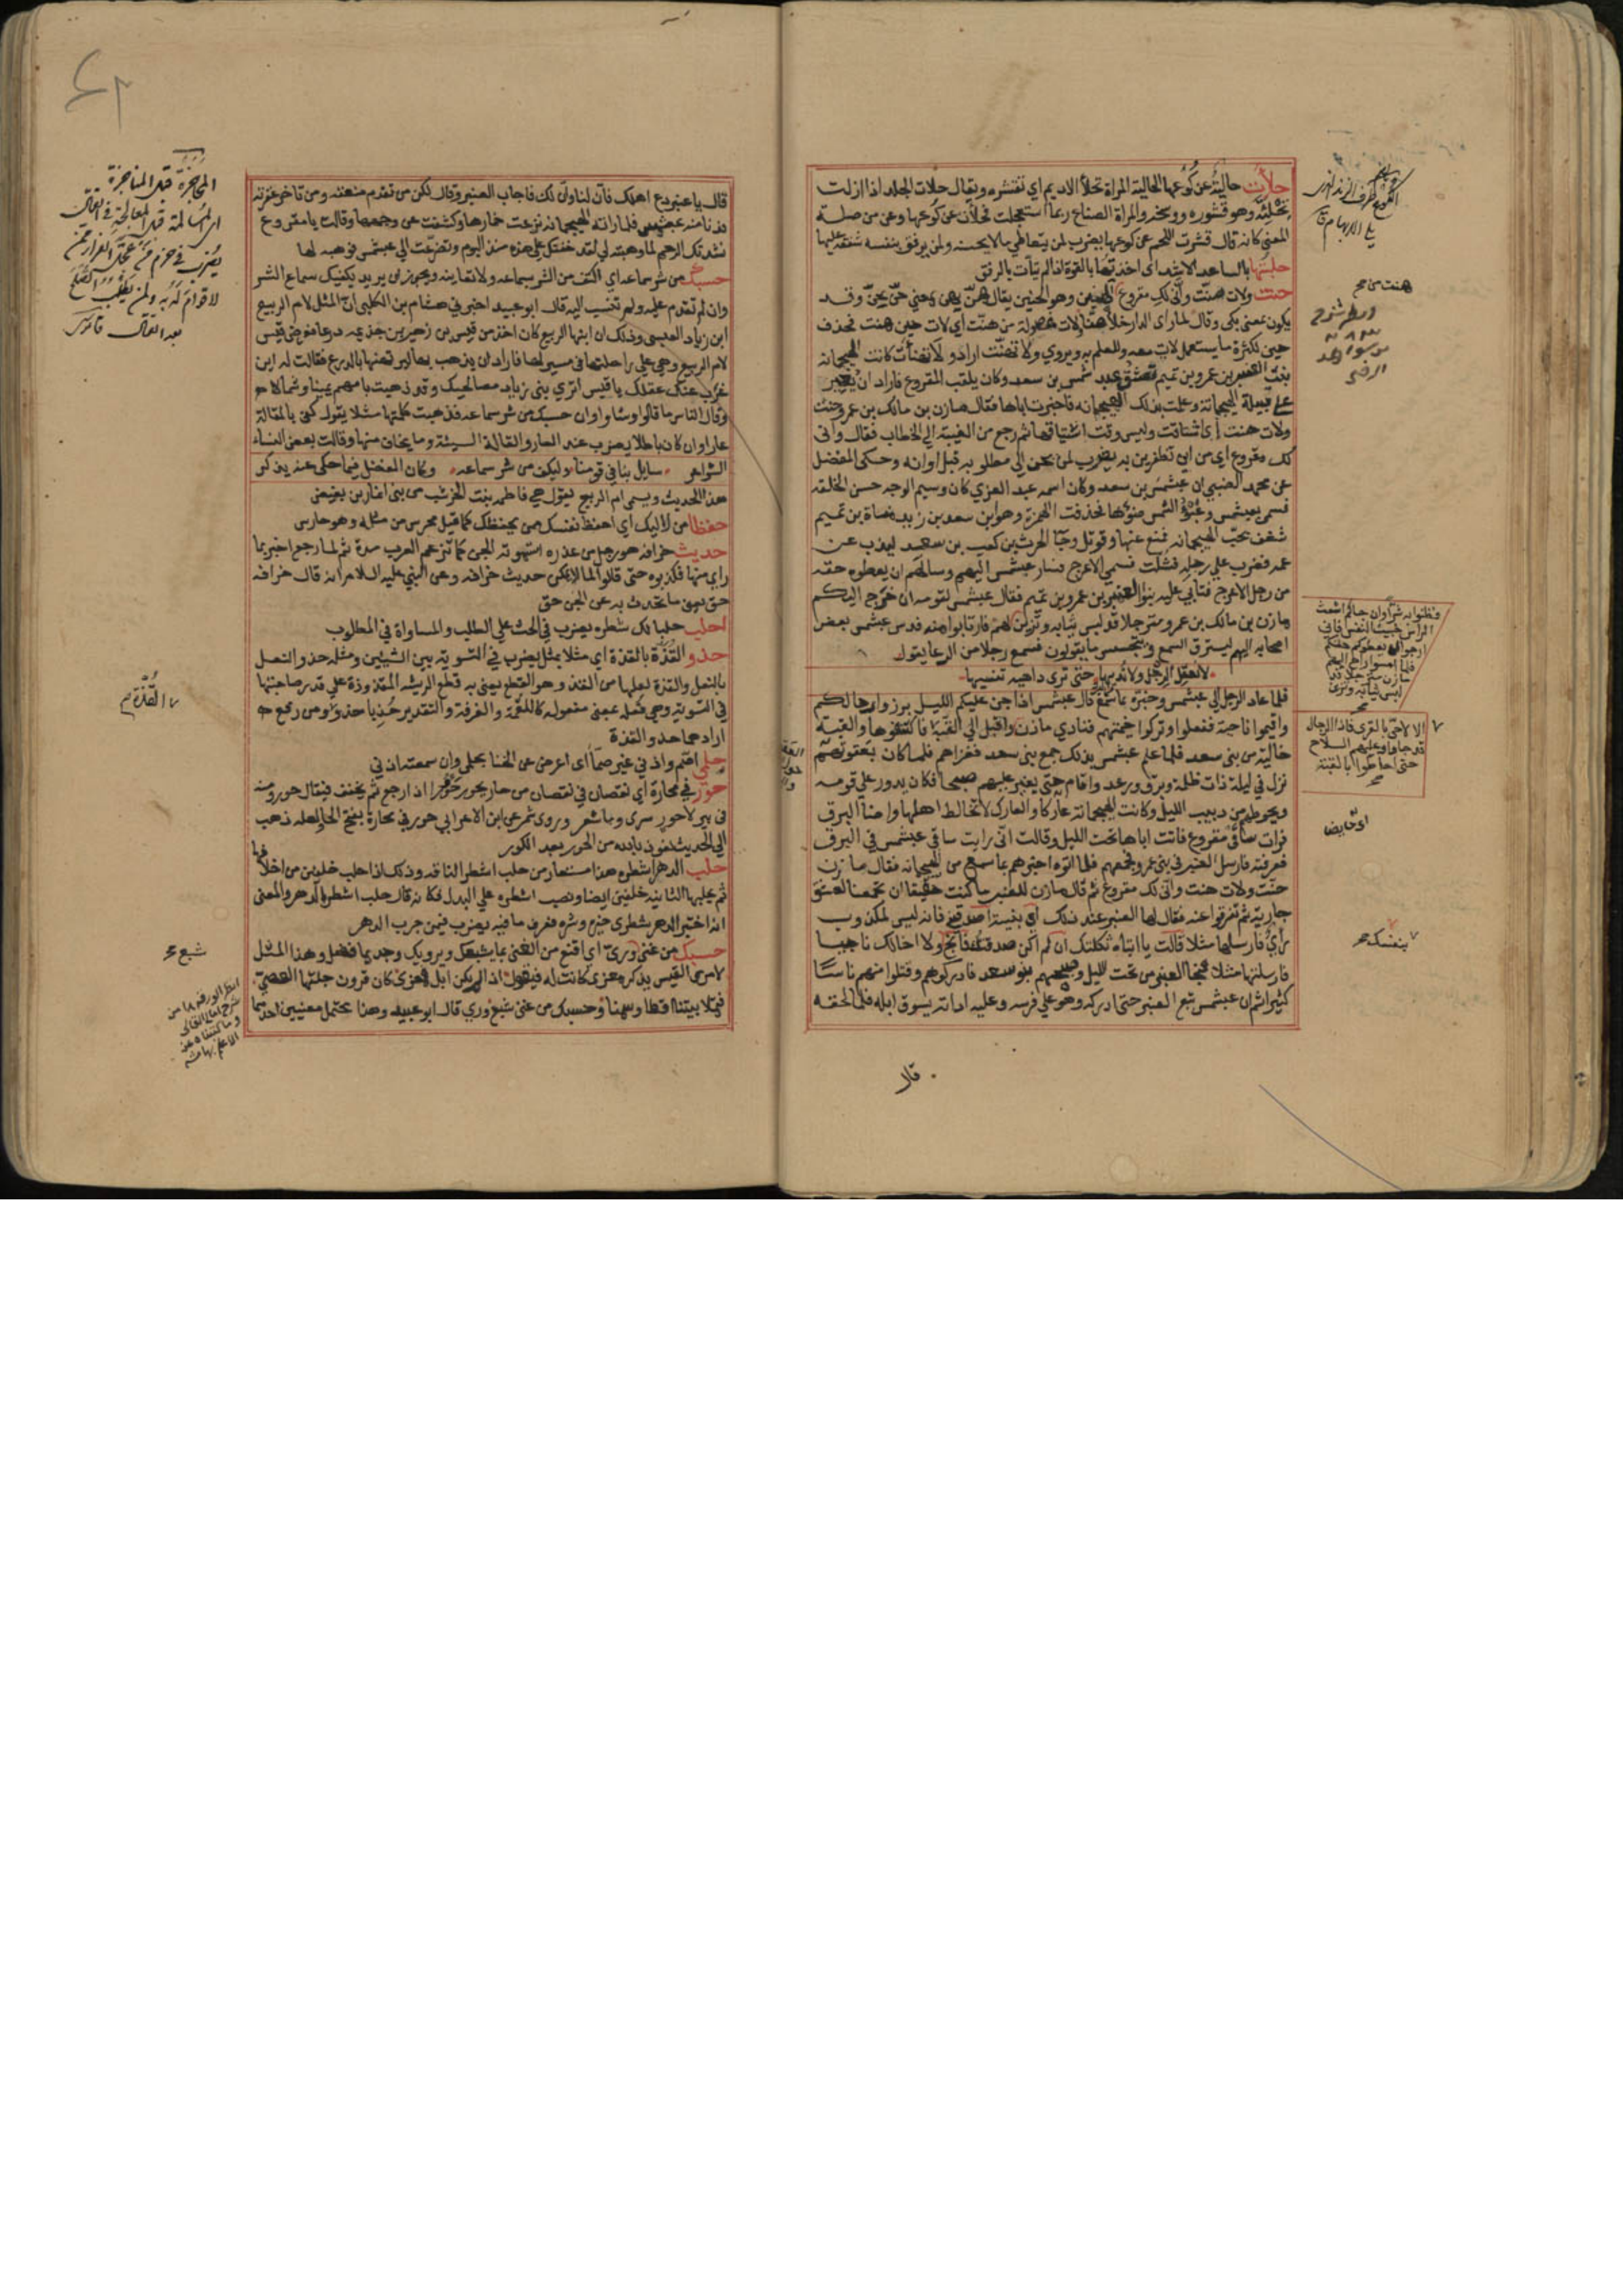 حلأت حالئة عن كوعها الحالية المراة تحلأ الاديم اي تقشره ويقال حلات الجلد اذا ازلت
تحلئه وهو قشوره ووسخه والمراة الصناع ربما استعجلت فحلأت عن كوعها وعن من صلة
المعنى كانه قال قشرت اللحم عن كوعها يضرب لمن يتعاطي ما لا يحسنه ولمن يرفق بنفسه شفقة عليها
حلبتها بالساعد الاشد اي اخذتها بالقوة اذ لم يتأت بالرفق
حنت ولات هنت وأنى لك مقروع
يكون بمعنى بكى وقال
حين لكثرة ما يستعمل لات معه وللعلم به ويروي ولا تهنت اراد ولا تهنأت كانت الهيجمانه
بنت العنبر بن عمرو بن تميم تعشق عبد شمس بن سعد وكان يلقب المقروع فاراد ان يغير
على قبيلة الهيجمانة وعلمت بذلك الهيجمانه فاخبرت اباها فقال مازن بن مالك بن عمرو حنت
ولات هنت اي اشتاقت وليس وقت اشتياقها ثم رجع من الغيبة الي الخطاب فقال وانى
لك مقروع اي من اين تظفرين به يضرب لمن يحن الى مطلوبه قبل اوانه وحكى المفضل
عن محمد الضبي ان عبشمس بن سعد وكان اسمه عبد العزي كان وسيم الوجه حسن الخلقه
فسمى بعبشمس وعبؤ الشمس ضوؤها فحذفت الهمزة وهو ابن سعد بن زيد مناة بن تميم
شغف بحب الهيجمانه فمنع عنها وقوتل وجآ الحرث بن كعب بن سعد ليذب عن
عمه فضرب علي رجله فشلت فسمي الاعرج فسار عبشمس اليهم وسالهم ان يعطوه حقه
من رجل الاعرج فتأبي عليه بنوا العنبر بن عمرو بن تميم فقال عبشمس لقومه ان خرج اليكم
مازن بن مالك بن عمرو مترجلا قد لبس ثيابه وتزين لكم فارتابوا منه فدس عبشمس بعض
اصحابه اليهم ليسترق السمع ويتجسس ما يقولون فسمع رجلا من الرعا يقول
لا نعقل الرجل ولا نديها حتى ترى داهية تنسيها
فلما عاد الرجل الى عبشمس وخبره بما سمع قال عبشمس اذا جن عليكم الليل برزوا رحالكم
واقيموا ناحية ففعلوا وتركوا خيمتهم فنادي مازن واقبل الي القبة فاكتنفوها والقبة
خالية من بنى سعد فلما علم عبشمس بذلك جمع بنى سعد فغزاهم فلما كان بعقوتهم
نزل في ليلة ذات ظلمة وبرق ورعد واقام حتى يغير عليهم صبحا فكان يدور علي قومه
ويحوطهم من دبيب الليل وكانت الهيجمانة عاركا والعارك لا تخالط اهلها واضأ البرق
فرات ساقى مقروع فاتت اباها تحت الليل وقالت اني رايت ساقي عبشمس في البرق
فعرفته فارسل العنبر في بنى عمرو فجمعهم فلما اتوه اخبرهم بما سمع من الهيجمانه فقال مازن
حنت ولات هنت وأنى لك مقروع ثم قال مازن للعنبر ما كنت حقيقا ان تجمعنا لعشق
جارية ثم تفرقوا عنه فقال لها العنبر عند ذلك اي بنية اصدقيني فانه ليس لمكذوب
رأي فارسلها مثلا قالت يا ابتاه ثكلتك ان لم اكن صدقتك فانج ولا اخالك ناجيا
فارسلتها مثلا فنجا العنبر من تحت الليل وصبحهم بنو سعد فادركوهم وقتلوا منهم ناسا
كثيرا ثم ان عبشمس تبع العنبر حتى ادركه وهو علي فرسه وعليه اداته يسوق ابله فلما لحقه
قال
هنت من صح
فظنوا به شرا وان جاكم اشعث
الراس خبيث النفس فاني
ارجوا ان يعطوكم حقكم
فلما امسوا راح اليهم
مازن مترجلا قد
لبس ثيابه وتزين
الا لاحي بالقرى فاذا الرجال
قد جاوا وعليهم السلاح
حتى احاطوا بالقبة
اي حايضا
بنفسك صح
قال يا عنبر دع اهلك فان لنا ولك فاجاب العنبر وقال لكن من تقدم منعته ومن تاخر عقرته
فدنا منه عبشمس فلما راته الهيجمانه نزعت خمارها وكشفت عن وجهها وقالت يا مقروع
نشدتك الرحم لما وهبته لي لقد خفتك علي هذه منذ اليوم وتضرعت الي عبشمس فوهبه لها
حسبك من شر سماعه اي اكتف من الشر بسماعه ولا تعاينه ويجوز ان يريد يكفيك سماع الشر
وان لم تقدم عليه ولم تنسب اليه قال ابو عبيد اخبرني هشام بن الكلبي ان المثل لام الربيع
ابن زياد العبسى وذلك ان ابنها الربيع كان اخذ من قيس بن زهير بن جذيمه درعا فعرض قيس
لام الربيع وهي علي راحلتها في مسير لها فاراد ان يذهب بها ليرتهنها بالدرع فقالت له اين
عزب عنك عقلك يا قيس اترى بنى زياد مصالحيك وقد ذهبت بامهم يمينا وشمالا
وقال الناس ما قالوا وشاوا وان حسبك من شر سماعه فذهبت كلمتها مثلا يقول كفى بالمقالة
عارا وان كان باطلا يضرب عند العار والقالة السيئة وما يخاف منها وقالت بعض النساء
الشواعر سايل بنا في قومنا وليكف من شر سماعه وكان المفضل فيما حكى عنه يذكر
هذا الحديث ويسمى ام الربيع يقول هي فاطمه بنت الخرشب من بنى انمار بن بغيض
حفظا من كاليك اي احفظ نفسك ممن يحفظك كما قيل محترس من مثله وهو حارس
حديث خرافه هو رجل من عذره استهوته الجن كما تزعم العرب مدة ثم لما رجع اخبر بما
راى منها فكذبوه حتى قالوا لما لا يمكن حديث خرافه وعن النبي عليه السلام انه قال خرافه
حق يعنى ما تحدث به عن الجن حق
احلب حلبا لك شطره يضرب في الحث علي الطلب والمساواة في المطلوب
حذو القذة بالقذة اي مثلا بمثل يضرب في التسوية بين الشيئين ومثله حذو النعل
بالنعل والقذة لعلها من القذ وهو القطع يعنى به قطع الريشه المقذوذة علي قدر صاحبتها
في التسوية وهي فعلة بمعنى مفعوله كاللقمة والغرفة والتقدير حذيا حذو ومن رفع
اراد هما حذو القذة
حلمي اصم واذني غير صمآ اي اعرض عن الخنا بحلمى وان سمعته اذني
حور في محارة اي نقصان في نقصان من حار يحور حورا اذا رجع ثم يخفف فيقال حور ومنه
في بير لا حور سرى وما شعر وروى شمر عن ابن الاعرابي حور في محارة بفتح الحا ولعله ذهب
الي الحديث نعوذ بالله من الحور بعد الكور
حلب الدهر اشطره هذا مستعار من حلب اشطر الناقه وذلك اذا حلب خلفين من اخلافها
ثم يحلبها الثانيه خلفين ايضا ونصب اشطره علي البدل فكانه قال حلب اشطر الدهر والمعنى
انه اختبر الدهر شطرى خيره وشره فعرف ما فيه يضرب فيمن جرب الدهر
حسبك من غنى شبع ورى اي اقنع من الغنى بما يشبعك ويرويك وجد بما فضل وهذا المثل
لامرى القيس يذكر معزى كانت له فيقول اذا لم يكن ابل فمعزى كان قرون جلتها العصي
فتملا بيتنا اقطا وسمنا وحسبك من غنى شبع وري قال ابو عبيد وهذا يحتمل معنيين احدهما
المحاجزة قبل المناجزة
اي المسالمة قبل المعالجة في القتال
يضرب في حزم من عجل الفرار ممن
لا قوام له به ولمن يطلب الصلح
بعد القتال قاموس
القذة
شبع صح